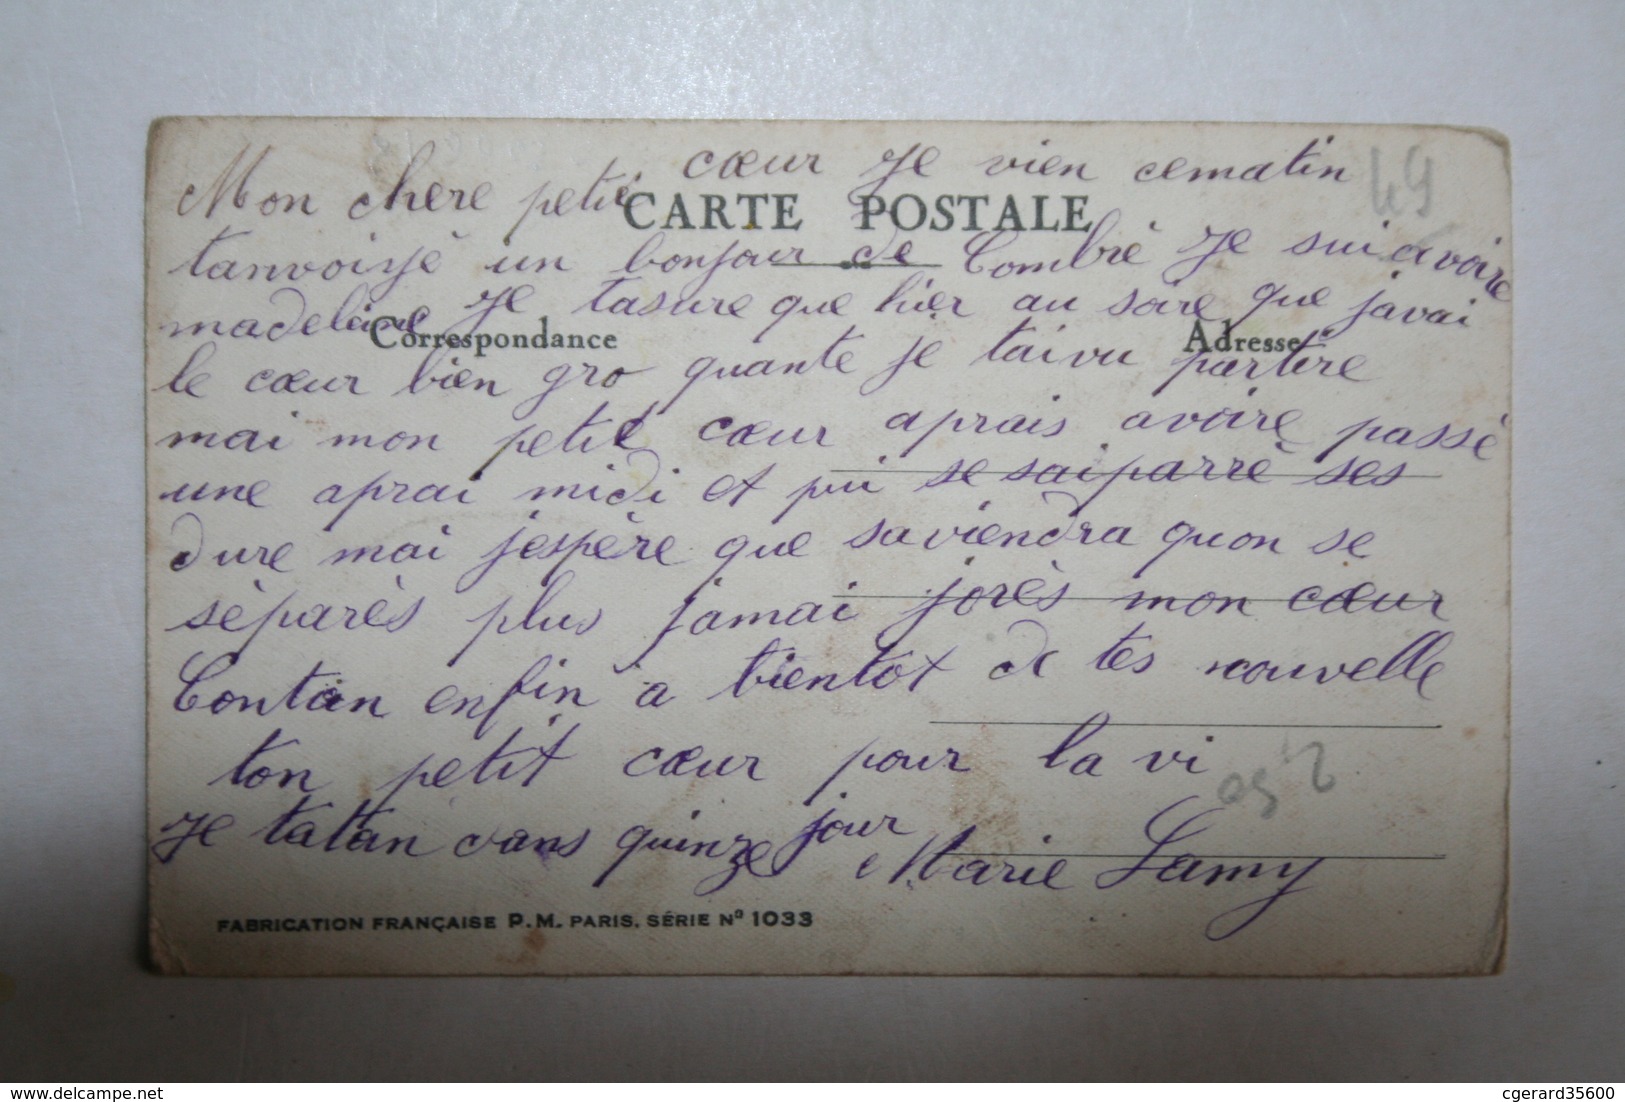 Mon chere petit cœur Je vien cematin
CARTE POSTALE
tanvoiyé un bonjour de Combré Je sui avoire
madeleine Je tasure que hier au soire que javai
Correspondance
Adresse
le cœur bien gro quante je taivu partire
mai mon petit cœur aprais avoire passé
une aprai midi et pui se saiparré ses
dure mai jespère que saviendra quon se
séparés plus jamai jorès mon cœur
Contan enfin a bientot de tes nouvelle
ton petit cœur pour la vi
Je tatan dans quinze jour
Marie Lamy
49
FABRICATION FRANÇAISE P.M. PARIS. SÉRIE Nº 1033
delcampe.net
cgerard35600